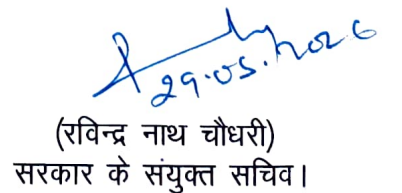 29.05.2026
(रविन्द्र नाथ चौधरी)
सरकार के संयुक्त सचिव।